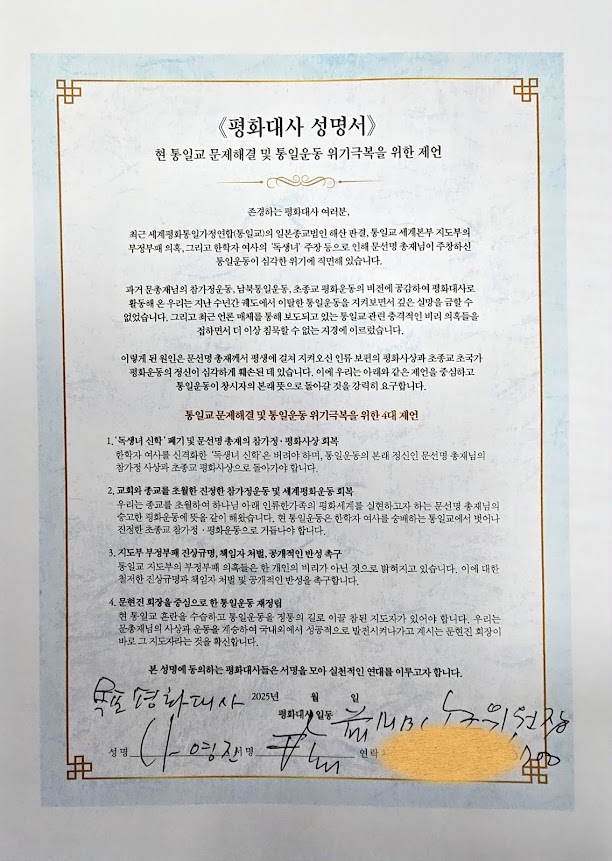 《평화대사 성명서》
현 통일교 문제해결 및 통일운동 위기극복을 위한 제언
존경하는 평화대사 여러분,
최근 세계평화통일가정연합(통일교)의 일본종교법인 해산 판결, 통일교 세계본부 지도부의
부정부패 의혹, 그리고 한학자 여사의 '독생녀' 주장 등으로 인해 문선명 총재님이 주창하신
통일운동이 심각한 위기에 직면해 있습니다.
과거 문총재님의 참가정운동, 남북통일운동, 초종교 평화운동의 비전에 공감하여 평화대사로
활동해 온 우리는 지난 수년간 궤도에서 이탈한 통일운동을 지켜보면서 깊은 실망을 금할 수
없었습니다. 그리고 최근 언론 매체를 통해 보도되고 있는 통일교 관련 충격적인 비리 의혹들을
접하면서 더 이상 침묵할 수 없는 지경에 이르렀습니다.
이렇게 된 원인은 문선명 총재께서 평생에 걸쳐 지켜오신 인류 보편의 평화사상과 초종교 초국가
평화운동의 정신이 심각하게 훼손된 데 있습니다. 이에 우리는 아래와 같은 제언을 중심하고
통일운동이 창시자의 본래 뜻으로 돌아갈 것을 강력히 요구합니다.
통일교 문제해결 및 통일운동 위기극복을 위한 4대 제언
1. '독생녀 신학' 폐기 및 문선명 총재의 참가정·평화사상 회복
한학자 여사를 신격화한 '독생녀 신학'은 버려야 하며, 통일운동의 본래 정신인 문선명 총재님의
참가정 사상과 초종교 평화사상으로 돌아가야 합니다.
2. 교회와 종교를 초월한 진정한 참가정운동 및 세계평화운동 회복
우리는 종교를 초월하여 하나님 아래 인류한가족의 평화세계를 실현하고자 하는 문선명 총재님의
숭고한 평화운동에 뜻을 같이 해왔습니다. 현 통일운동은 한학자 여사를 숭배하는 통일교에서 벗어나
진정한 초종교 참가정·평화운동으로 거듭나야 합니다.
3. 지도부 부정부패 진상규명, 책임자 처벌, 공개적인 반성 촉구
통일교 지도부의 부정부패 의혹들은 한 개인의 비리가 아닌 것으로 밝혀지고 있습니다. 이에 대한
철저한 진상규명과 책임자 처벌 및 공개적인 반성을 촉구합니다.
4. 문현진 회장을 중심으로 한 통일운동 재정립
현 통일교 혼란을 수습하고 통일운동을 정통의 길로 이끌 참된 지도자가 있어야 합니다. 우리는
문총재님의 사상과 운동을 계승하여 국내외에서 성공적으로 발전시켜나가고 계시는 문현진 회장이
바로 그 지도자라는 것을 확신합니다.
본 성명에 동의하는 평화대사들은 서명을 모아 실천적인 연대를 이루고자 합니다.
목포 평화대사 2025년 월 일
평화대사 일동 노조위원장
성명 나 영진 서명 연락